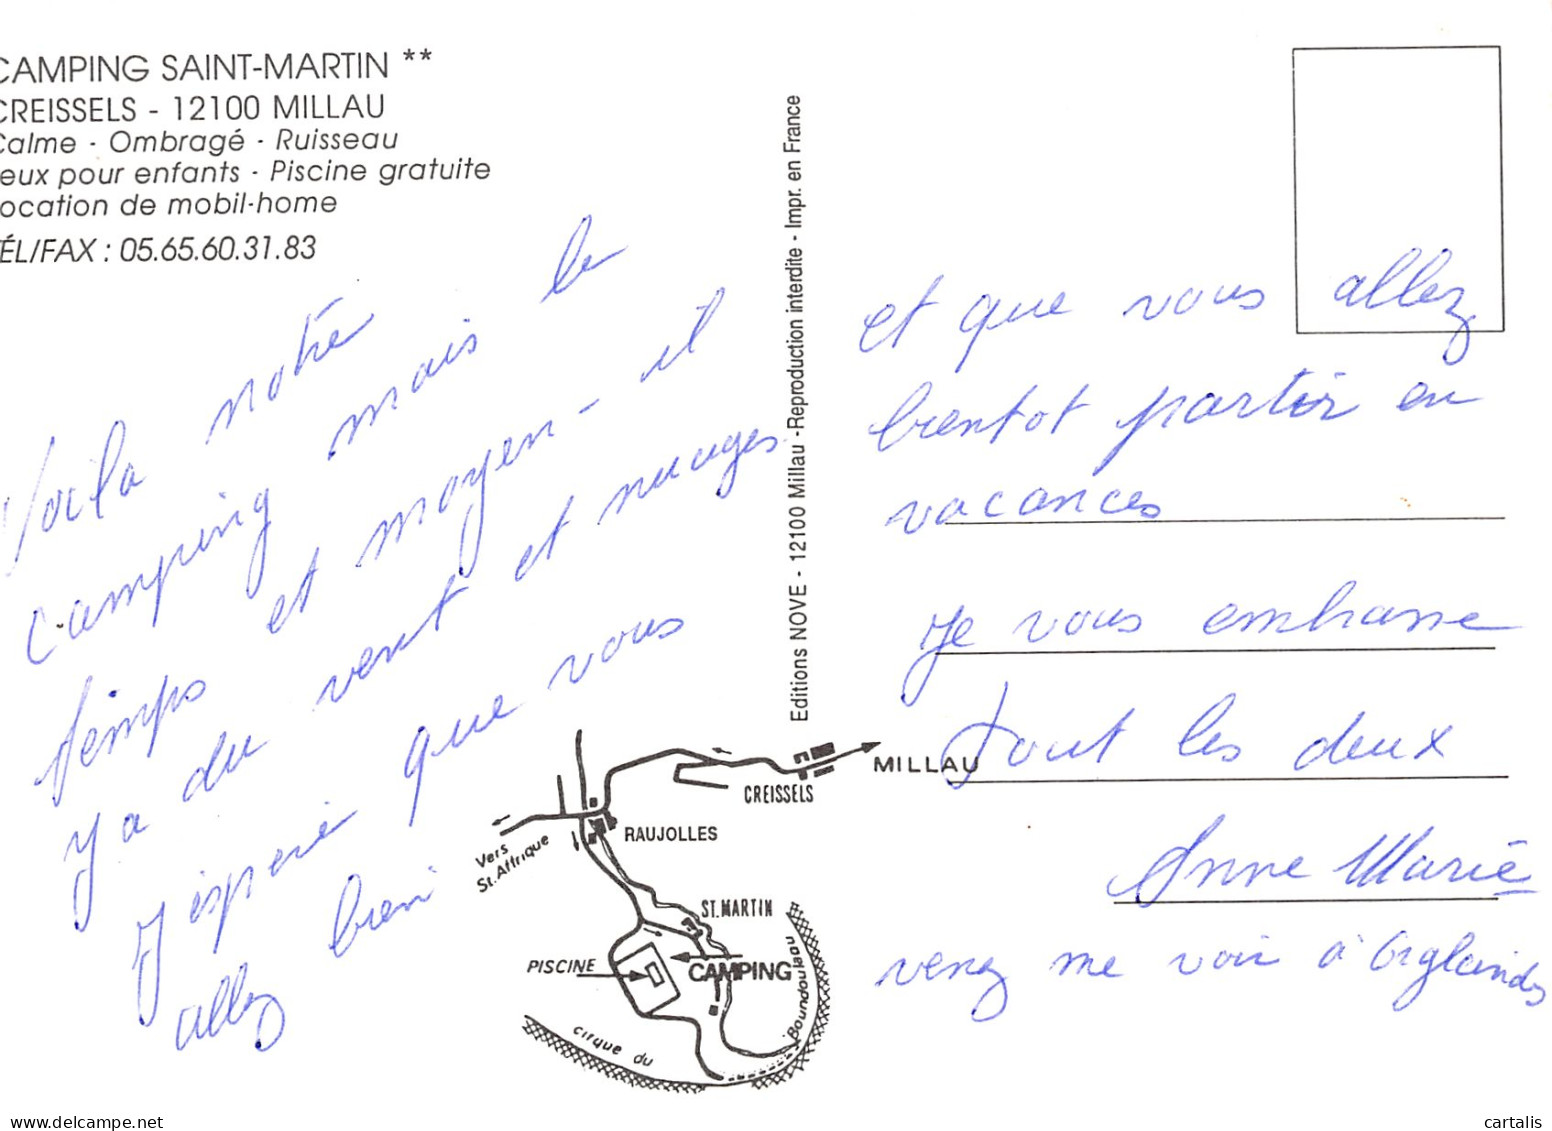 CAMPING SAINT-MARTIN **
CREISSELS - 12100 MILLAU
Calme - Ombragé - Ruisseau
Jeux pour enfants - Piscine gratuite
Location de mobil-home
TÉL/FAX : 05.65.60.31.83
Voila notre
camping mais le
temps et moyen - il
y a du vent et nuages
J'espere que vous
allez bien
Editions NOVE - 12100 Millau -Reproduction interdite - Impr. en France
et que vous allez
bientot partir en
vacances
Je vous embrasse
tout les deux
Anne Marie
venez me voir à
MILLAU
CREISSELS
RAUJOLLES
Vers
St. Affrique
ST. MARTIN
PISCINE
CAMPING
cirque du
Boundoulaou
www.delcampe.net
cartalis